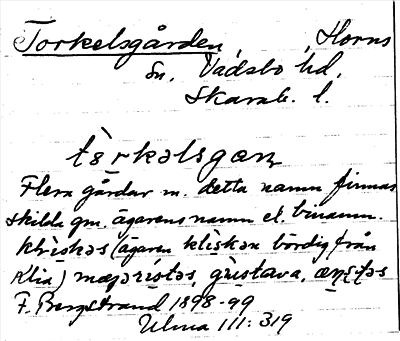 Torkelsgården Horns
Sn, Vadsbo hd,
Skarab. l.
tɵ̀rkəlsgaɳ
Flera gårdar m. detta namn finnas
skilda gm. ägarens namn el. binamn.
klìskəs (ägaren klìskən bördig från
Klia) majorìstəs, gùstava,
F. Bergstrand 1898-99
Ulma 111:319